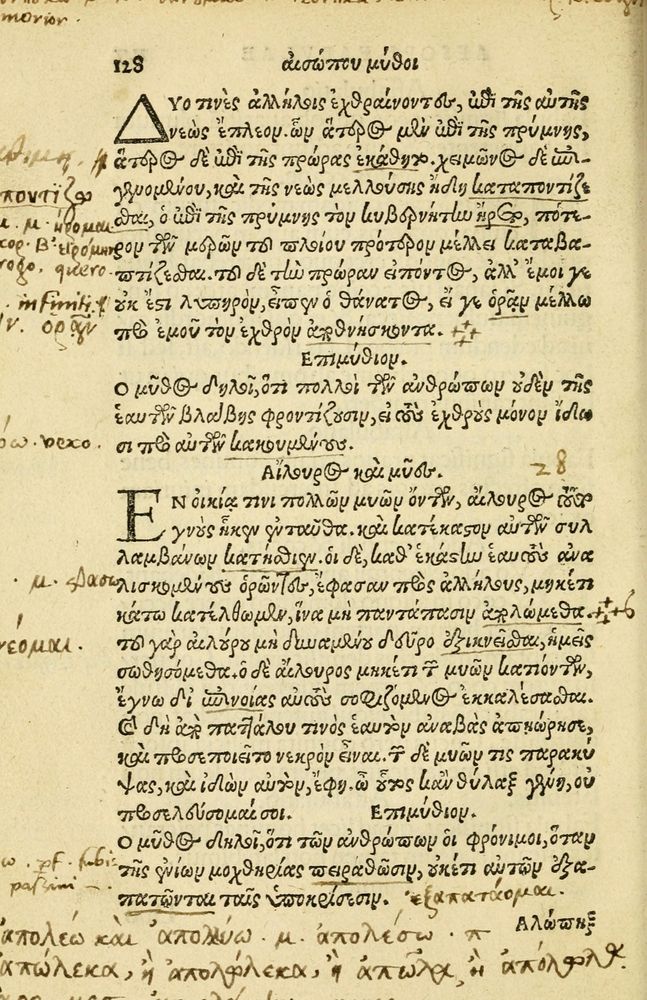 128 αἰσώπου μύθοι
ΔΥΟ τινὲς ἀλλήλοις ἐχθραίνοντες, ἐπὶ τῆς αὐτῆς
νεὼς ἔπλεον. ὧν ἅτερος μὲν ἐπὶ τῆς πρύμνης,
ἅτερος δὲ ἐπὶ τῆς πρώρας ἐκάθητο. χειμῶνος δὲ ἐπι-
γενομένου, καὶ τῆς νεὼς μελλούσης ἤδη καταποντίζε
σθαι, ὁ ἐπὶ τῆς πρύμνης τὸν κυβερνήτην ἤρετο, πότε-
ρον τῶν μερῶν τοῦ πλοίου πρότερον μέλλει καταβα-
πτίζεσθαι. τοῦ δὲ τὴν πρώραν εἰπόντος, ἀλλ' ἔμοι γε
οὐκ ἔστι λυπηρὸν, εἶπεν ὁ θάνατος, εἴ γε ὁρᾷν μέλλω
πρὸ ἐμοῦ τὸν ἐχθρὸν ἀποθνήσκοντα.
Επιμύθιον.
Ο μῦθος δηλοῖ, ὅτι πολλοὶ τῶν ἀνθρώπων οὐδὲν τῆς
ἑαυτῶν βλάβης φροντίζουσιν, εἰ τοὺς ἐχθροὺς μόνον ἴδω
σι πρὸ αὐτῶν κακουμένους.
Αἴλουρος καὶ μῦες. 28
ΕΝ οἰκίᾳ τινι πολλῶν μυῶν ὄντων, αἴλουρος τοῦτο
γνοὺς ἧκεν ἐνταῦθα. καὶ κατέκαστον αὐτῶν συλ
λαμβάνων κατήσθιεν. οἱ δὲ, καθ' ἑκάστην ἑαυτοὺς ἀνα
λισκομένους ὁρῶντες, ἔφασαν πρὸς ἀλλήλους, μηκέτι
κάτω κατέλθωμεν, ἵνα μὴ παντάπασιν ἀπολώμεθα. 6
τοῦ γὰρ αἰλούρου μὴ δυναμένου δεῦρο ἐξικνεῖσθαι, ἡμεῖς
σωθησόμεθα. ὁ δὲ αἴλουρος μηκέτι τῶν μυῶν κατιόντων,
ἔγνω δι' ἐπινοίας αὐτοὺς σοφιζόμενος ἐκκαλέσασθαι.
καὶ δὴ ἀπὸ παττάλου τινὸς ἑαυτὸν ἀναβὰς ἀπῃώρησε,
καὶ προσεποιεῖτο νεκρὸν εἶναι. τῶν δὲ μυῶν τις παρακύ
ψας, καὶ ἰδὼν αὐτὸν, ἔφη. ὦ οὗτος κἂν θύλαξ γένῃ, οὐ
προσελεύσομαί σοι. Επιμύθιον.
Ο μῦθος δηλοῖ, ὅτι τῶν ἀνθρώπων οἱ φρόνιμοι, ὅταν
τῆς ἐνίων μοχθηρίας πειραθῶσιν, οὐκέτι αὐτῶν ἐξα-
πατῶνται ταῖς ὑποκρίσεσιν. ἐξαπατάομαι.
Αλώπηξ
ἀπολέω καὶ ἀπολύω. μ. ἀπολέσω. π
ἀπώλεκα, ἢ ἀπολώλεκα, ἢ
morior.
ποντίζω
quero
infiniti.
ὁρᾷν
neco.
νέομαι.